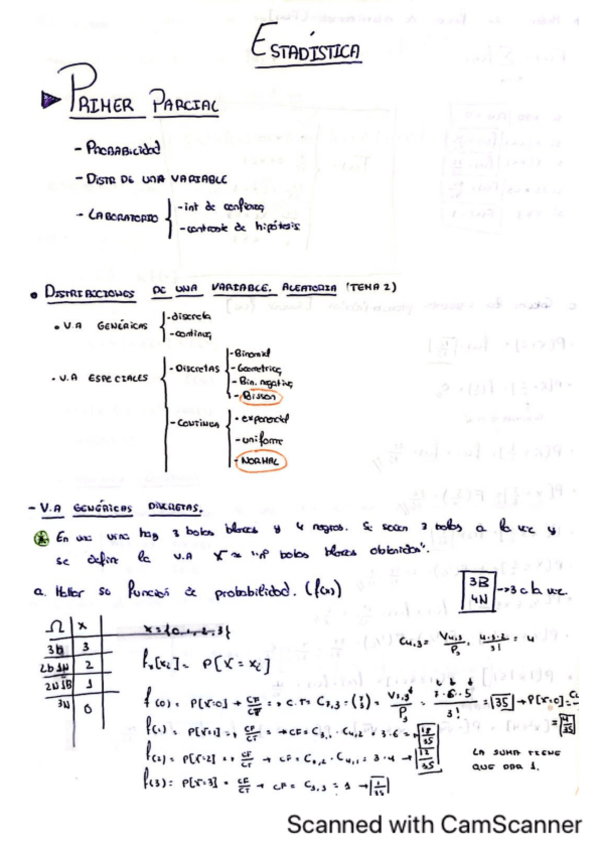 ESTADÍSTICA
PRIMER PARCIAL
- PROBABILIDAD
- DISTR DE UNA VARIABLE
- LABORATORIO { - int de confianza
- contraste de hipótesis
• DISTRIBUCIONES DE UNA VARIABLE. ALEATORIA (TEMA 2)
• V.A GENÉRICAS { - discreta
- continua
• V.A ESPECIALES { - DISCRETAS { - Binomial
- Geometrica
- Bin. negativa
- Poisson
- CONTINUA { - exponencial
- uniforme
- NORMAL
- V.A GENÉRICAS DISCRETAS.
En una urna hay 3 bolas blancas y 4 negras. Se sacan 3 bolas a la vez y
se define la V.A X = "nº bolas blancas obtenidas".
a. Hallar su función de probabilidad. (f(x))
3B
4N → 3 a la vez
Ω | X
3b | 3
2b 1N | 2
2N 1B | 1
3N | 0
X = {0, 1, 2, 3}
fx[xi] = P[X = xi]
C4,3 = V4,3/P3 = 4·3·2/3! = 4
f(0) = P[X=0] → CF/CT → C.T = C7,3 = (7 3) = V7,3/P3 = 7·6·5/3! = 35 → P[X=0] =
= 4/35
f(1) = P[X=1] = CF/CT = → CF = C3,1 · C4,2 = 3·6 = 18/35
f(2) = P[X=2] = CF/CT → CF = C3,2 · C4,1 = 3·4 → 12/35
f(3) = P[X=3] = CF/CT → CF = C3,3 = 1 → 1/35
LA SUMA TIENE
QUE DAR 1.
Scanned with CamScanner